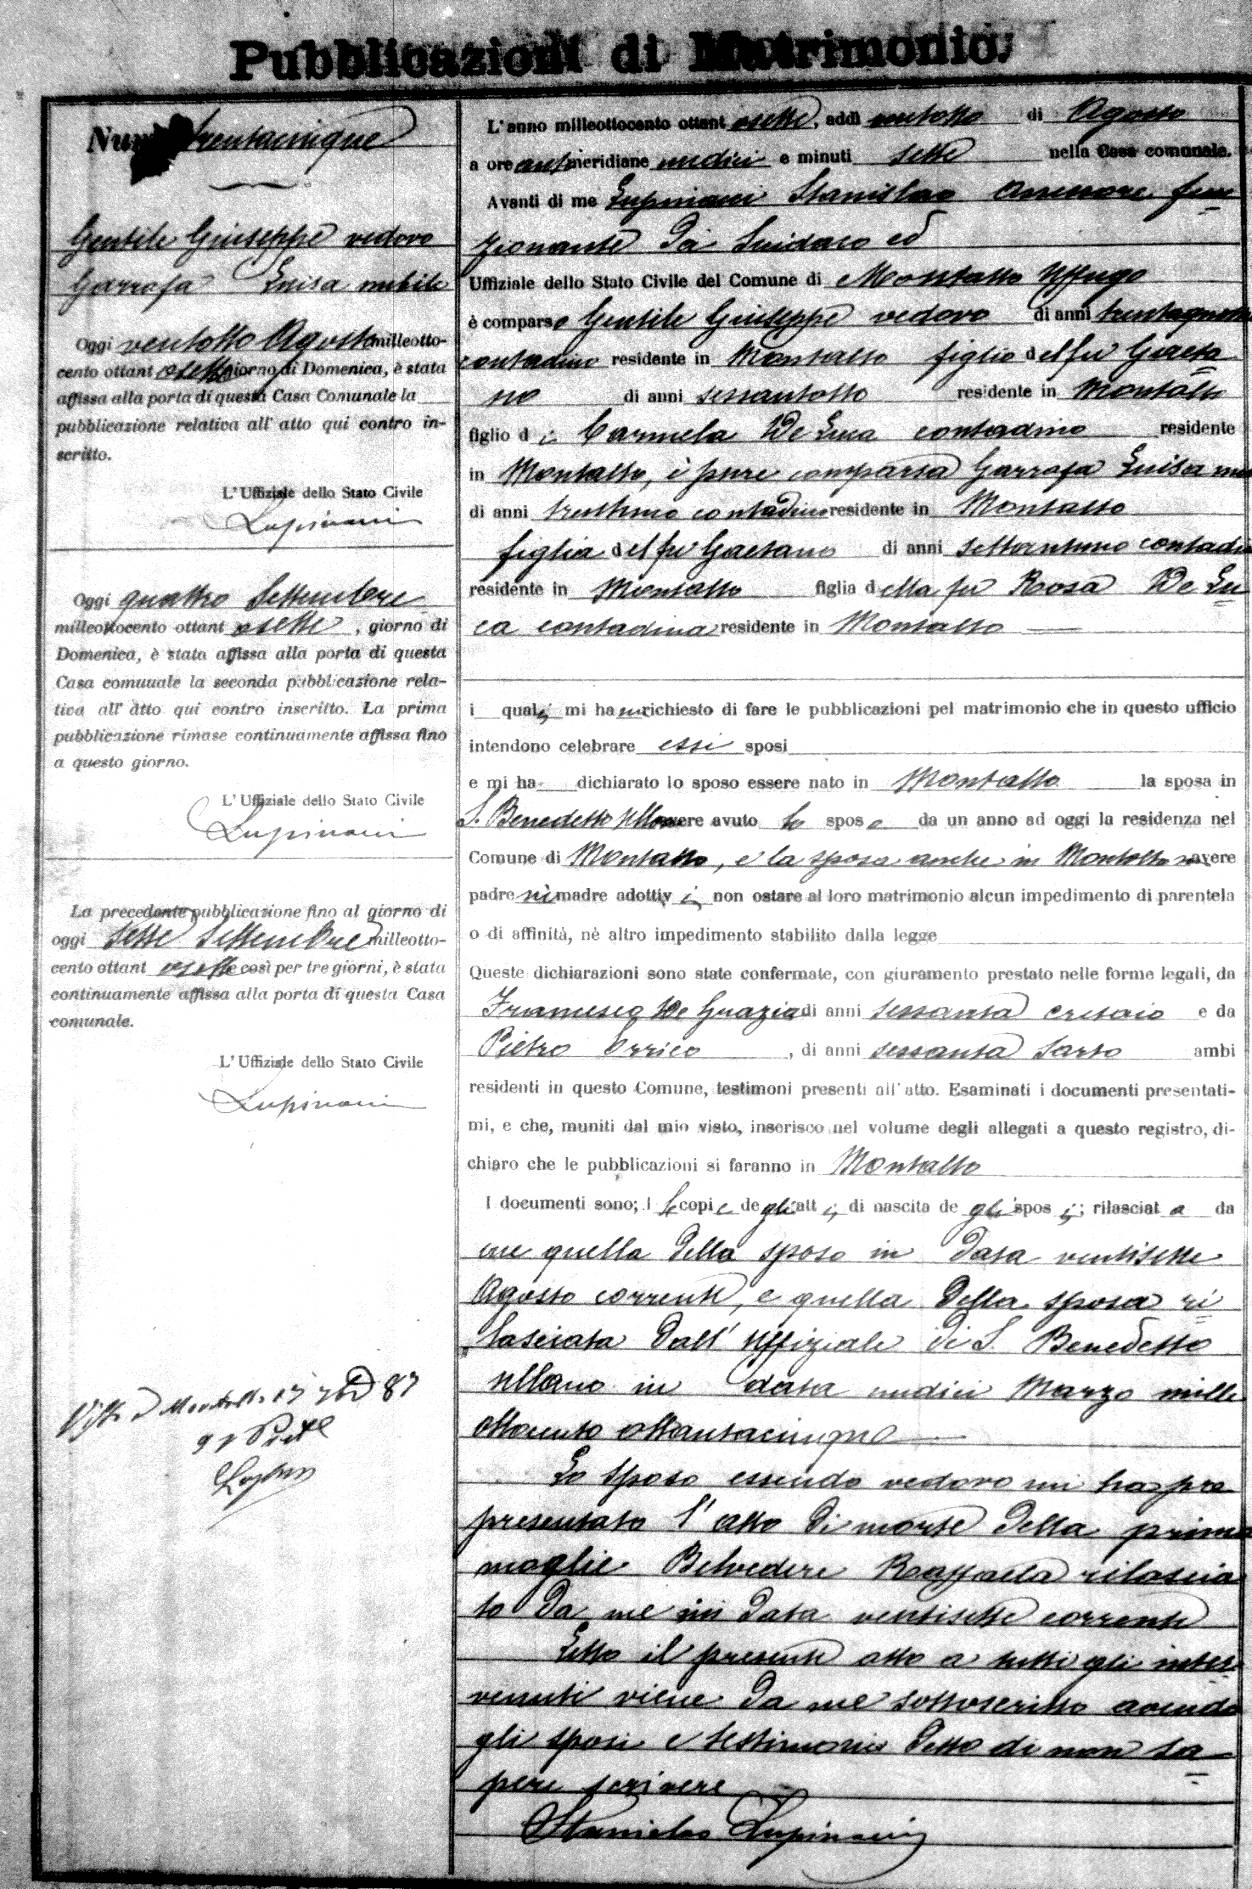 Pubblicazioni di Matrimonio.
Num trentacinque
Gentile Giuseppe vedovo
Garrafa Luisa nubile
Oggi ventotto Agosto milleotto-
cento ottantasette giorno di Domenica, è stata
affissa alla porta di questa Casa Comunale la
pubblicazione relativa all' atto qui contro in-
scritto.
L'Uffiziale dello Stato Civile
Lupinacci
Oggi quattro Settembre
milleottocento ottantasette, giorno di
Domenica, è stata affissa alla porta di questa
Casa comunale la seconda pubblicazione rela-
tiva all' atto qui contro inscritto. La prima
pubblicazione rimase continuamente affissa fino
a questo giorno.
L'Uffiziale dello Stato Civile
Lupinacci
La precedente pubblicazione fino al giorno di
oggi sette Settembre milleotto-
cento ottantasette così per tre giorni, è stata
continuamente affissa alla porta di questa Casa
comunale.
L'Uffiziale dello Stato Civile
Lupinacci
87
L'anno milleottocento ottantasette, addì ventotto di Agosto
a ore antimeridiane undici e minuti sette nella Casa comunale.
Avanti di me Lupinacci Stanislao Assessore fun
zionante da Sindaco ed
Uffiziale dello Stato Civile del Comune di Montalto Uffugo
è comparso Gentile Giuseppe vedovo di anni trentaquattro
contadino residente in Montalto figlio del fu Gaeta
no di anni sessantotto residente in Montalto
figlio di Carmela De Luca contadino residente
in Montalto, è pure comparsa Garrafa Luisa nu
di anni trentuno contadina residente in Montalto
figlia del fu Gaetano di anni settantuno contadin
residente in Montalto figlia della fu Rosa De Lu
ca contadina residente in Montalto
i quali mi hanno richiesto di fare le pubblicazioni pel matrimonio che in questo ufficio
intendono celebrare essi sposi
e mi ha dichiarato lo sposo essere nato in Montalto la sposa in
S. Benedetto Ullano avere avuto lo sposo da un anno ad oggi la residenza nel
Comune di Montalto, e la sposa anche in Montalto non avere
padre nè madre adottivi non ostare al loro matrimonio alcun impedimento di parentela
o di affinità, nè altro impedimento stabilito dalla legge
Queste dichiarazioni sono state confermate, con giuramento prestato nelle forme legali, da
Francesco De Grazia di anni sessanta e da
Pietro Orrico, di anni sessanta sarto ambi
residenti in questo Comune, testimoni presenti all'atto. Esaminati i documenti presentati-
mi, e che, muniti dal mio visto, inserisco nel volume degli allegati a questo registro, di-
chiaro che le pubblicazioni si faranno in Montalto
I documenti sono; 1 le copie degli atti di nascita degli sposi; rilasciata da
me quella dello sposo in data ventisette
Agosto corrente, e quella della sposa ri
lasciata dall'Uffiziale di S. Benedetto
Ullano in data undici Marzo mille
ottocento ottantacinque
Lo sposo essendo vedovo mi ha pre
presentato l'atto di morte della prima
moglie Belvedere Raffaela rilascia
to da me in data ventisette corrente
Letto il presente atto a tutti gli inter
venuti viene da me sottoscritto avendo
gli sposi e testimoni detto di non sa
pere scrivere
Stanislao Lupinacci